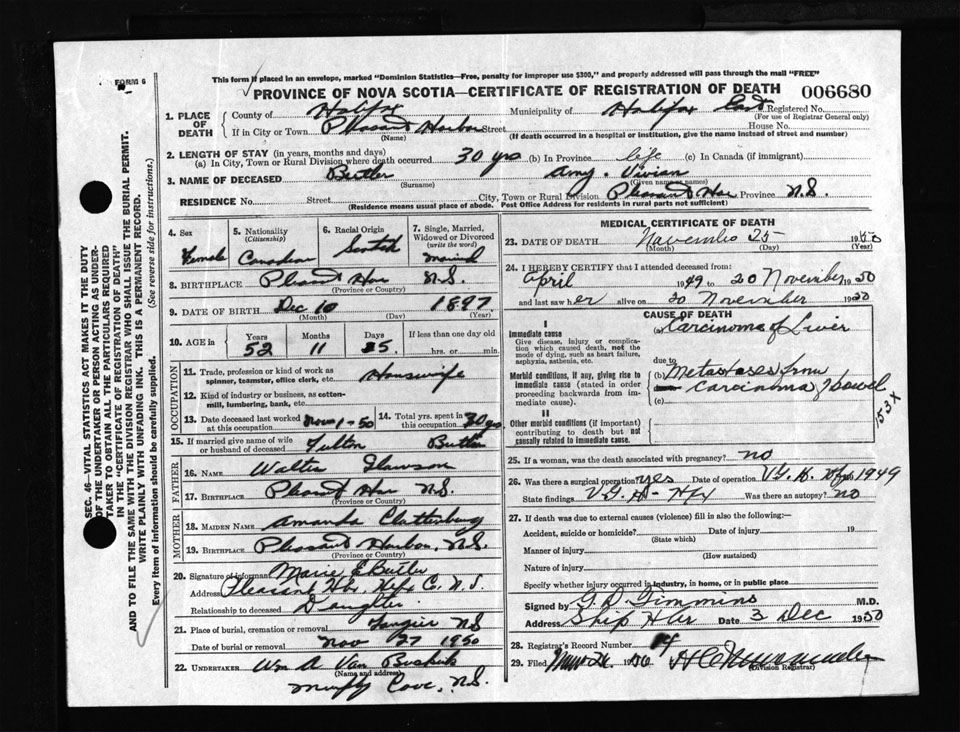 FORM 6
This form if placed in an envelope, marked "Dominion Statistics—Free, penalty for improper use $300," and properly addressed will pass through the mail "FREE"
PROVINCE OF NOVA SCOTIA—CERTIFICATE OF REGISTRATION OF DEATH 006680
1. PLACE OF DEATH
County of Halifax Municipality of Halifax East Registered No.
(For use of Registrar General only)
If in City or Town Pleasant Harbor Street House No.
(Name) (If death occurred in a hospital or institution, give the name instead of street and number)
2. LENGTH OF STAY (in years, months and days)
(a) In City, Town or Rural Division where death occurred 30 yrs (b) In Province life (c) In Canada (if immigrant)
3. NAME OF DECEASED Butler Amy. Vivian
(Surname) (Given name or names)
RESIDENCE No. Street City, Town or Rural Division Pleasant Har Province N.S.
(Residence means usual place of abode. Post Office Address for residents in rural parts not sufficient)
4. Sex
Female
5. Nationality
(Citizenship)
Canadian
6. Racial Origin
Scotish
7. Single, Married, Widowed or Divorced
(write the word)
Married
8. BIRTHPLACE Pleasant Har N.S.
(Province or Country)
9. DATE OF BIRTH Dec 10 1897
(Month) (Day) (Year)
10. AGE in
Years Months Days If less than one day old
52 11 15. hrs. or min.
OCCUPATION
11. Trade, profession or kind of work as spinner, teamster, office clerk, etc. Housewife
12. Kind of industry or business, as cotton-mill, lumbering, bank, etc.
13. Date deceased last worked at this occupation Nov 1-50
14. Total yrs. spent in this occupation 30 yrs
15. If married give name of wife or husband of deceased Fulton Butler
FATHER
16. NAME Walter Glawson
17. BIRTHPLACE Pleasant Har N.S.
(Province or Country)
MOTHER
18. MAIDEN NAME Amanda Clattenburg
19. BIRTHPLACE Pleasant Harbor, N.S.
(Province or Country)
20. Signature of informant Marie E Butler
Address Pleasant Hbr. Hfx C. N.S.
Relationship to deceased Daughter
21. Place of burial, cremation or removal Tangier N.S
Date of burial or removal Nov 27 1950
22. UNDERTAKER Wm A Van Buskirk
(Name and address)
Murphy Cove, N.S.
MEDICAL CERTIFICATE OF DEATH
23. DATE OF DEATH November 25 1950
(Month) (Day) (Year)
24. I HEREBY CERTIFY that I attended deceased from:
April 1949 to 20 November 1950
and last saw her alive on 20 November 1950
CAUSE OF DEATH
I
Immediate cause
Give disease, injury or complication which caused death, not the mode of dying, such as heart failure, asphyxia, asthenia, etc.
(a) Carcinoma of Liver
due to
Morbid conditions, if any, giving rise to immediate cause (stated in order proceeding backwards from immediate cause).
(b) Metastases from
carcinoma of bowel
(c)
153X
II
Other morbid conditions (if important) contributing to death but not causally related to immediate cause.
25. If a woman, was the death associated with pregnancy? no
26. Was there a surgical operation? yes Date of operation V.G.H. 1949
State findings V.G.H - Hfx Was there an autopsy? no
27. If death was due to external causes (violence) fill in also the following:—
Accident, suicide or homicide? Date of injury 19
(State which)
Manner of injury
(How sustained)
Nature of injury
Specify whether injury occurred in industry, in home, or in public place
Signed by Timmins M.D.
Address Ship Har Date 3 Dec 1950
28. Registrar's Record Number 14
29. Filed
(Division Registrar)
SEC. 46—VITAL STATISTICS ACT MAKES IT THE DUTY
OF THE UNDERTAKER OR PERSON ACTING AS UNDER-
TAKER TO OBTAIN ALL THE PARTICULARS REQUIRED
IN THE "CERTIFICATE OF REGISTRATION OF DEATH"
AND TO FILE THE SAME WITH THE DIVISION REGISTRAR WHO SHALL ISSUE THE BURIAL PERMIT.
WRITE PLAINLY WITH UNFADING INK. THIS IS A PERMANENT RECORD.
Every item of information should be carefully supplied. (See reverse side for instructions.)